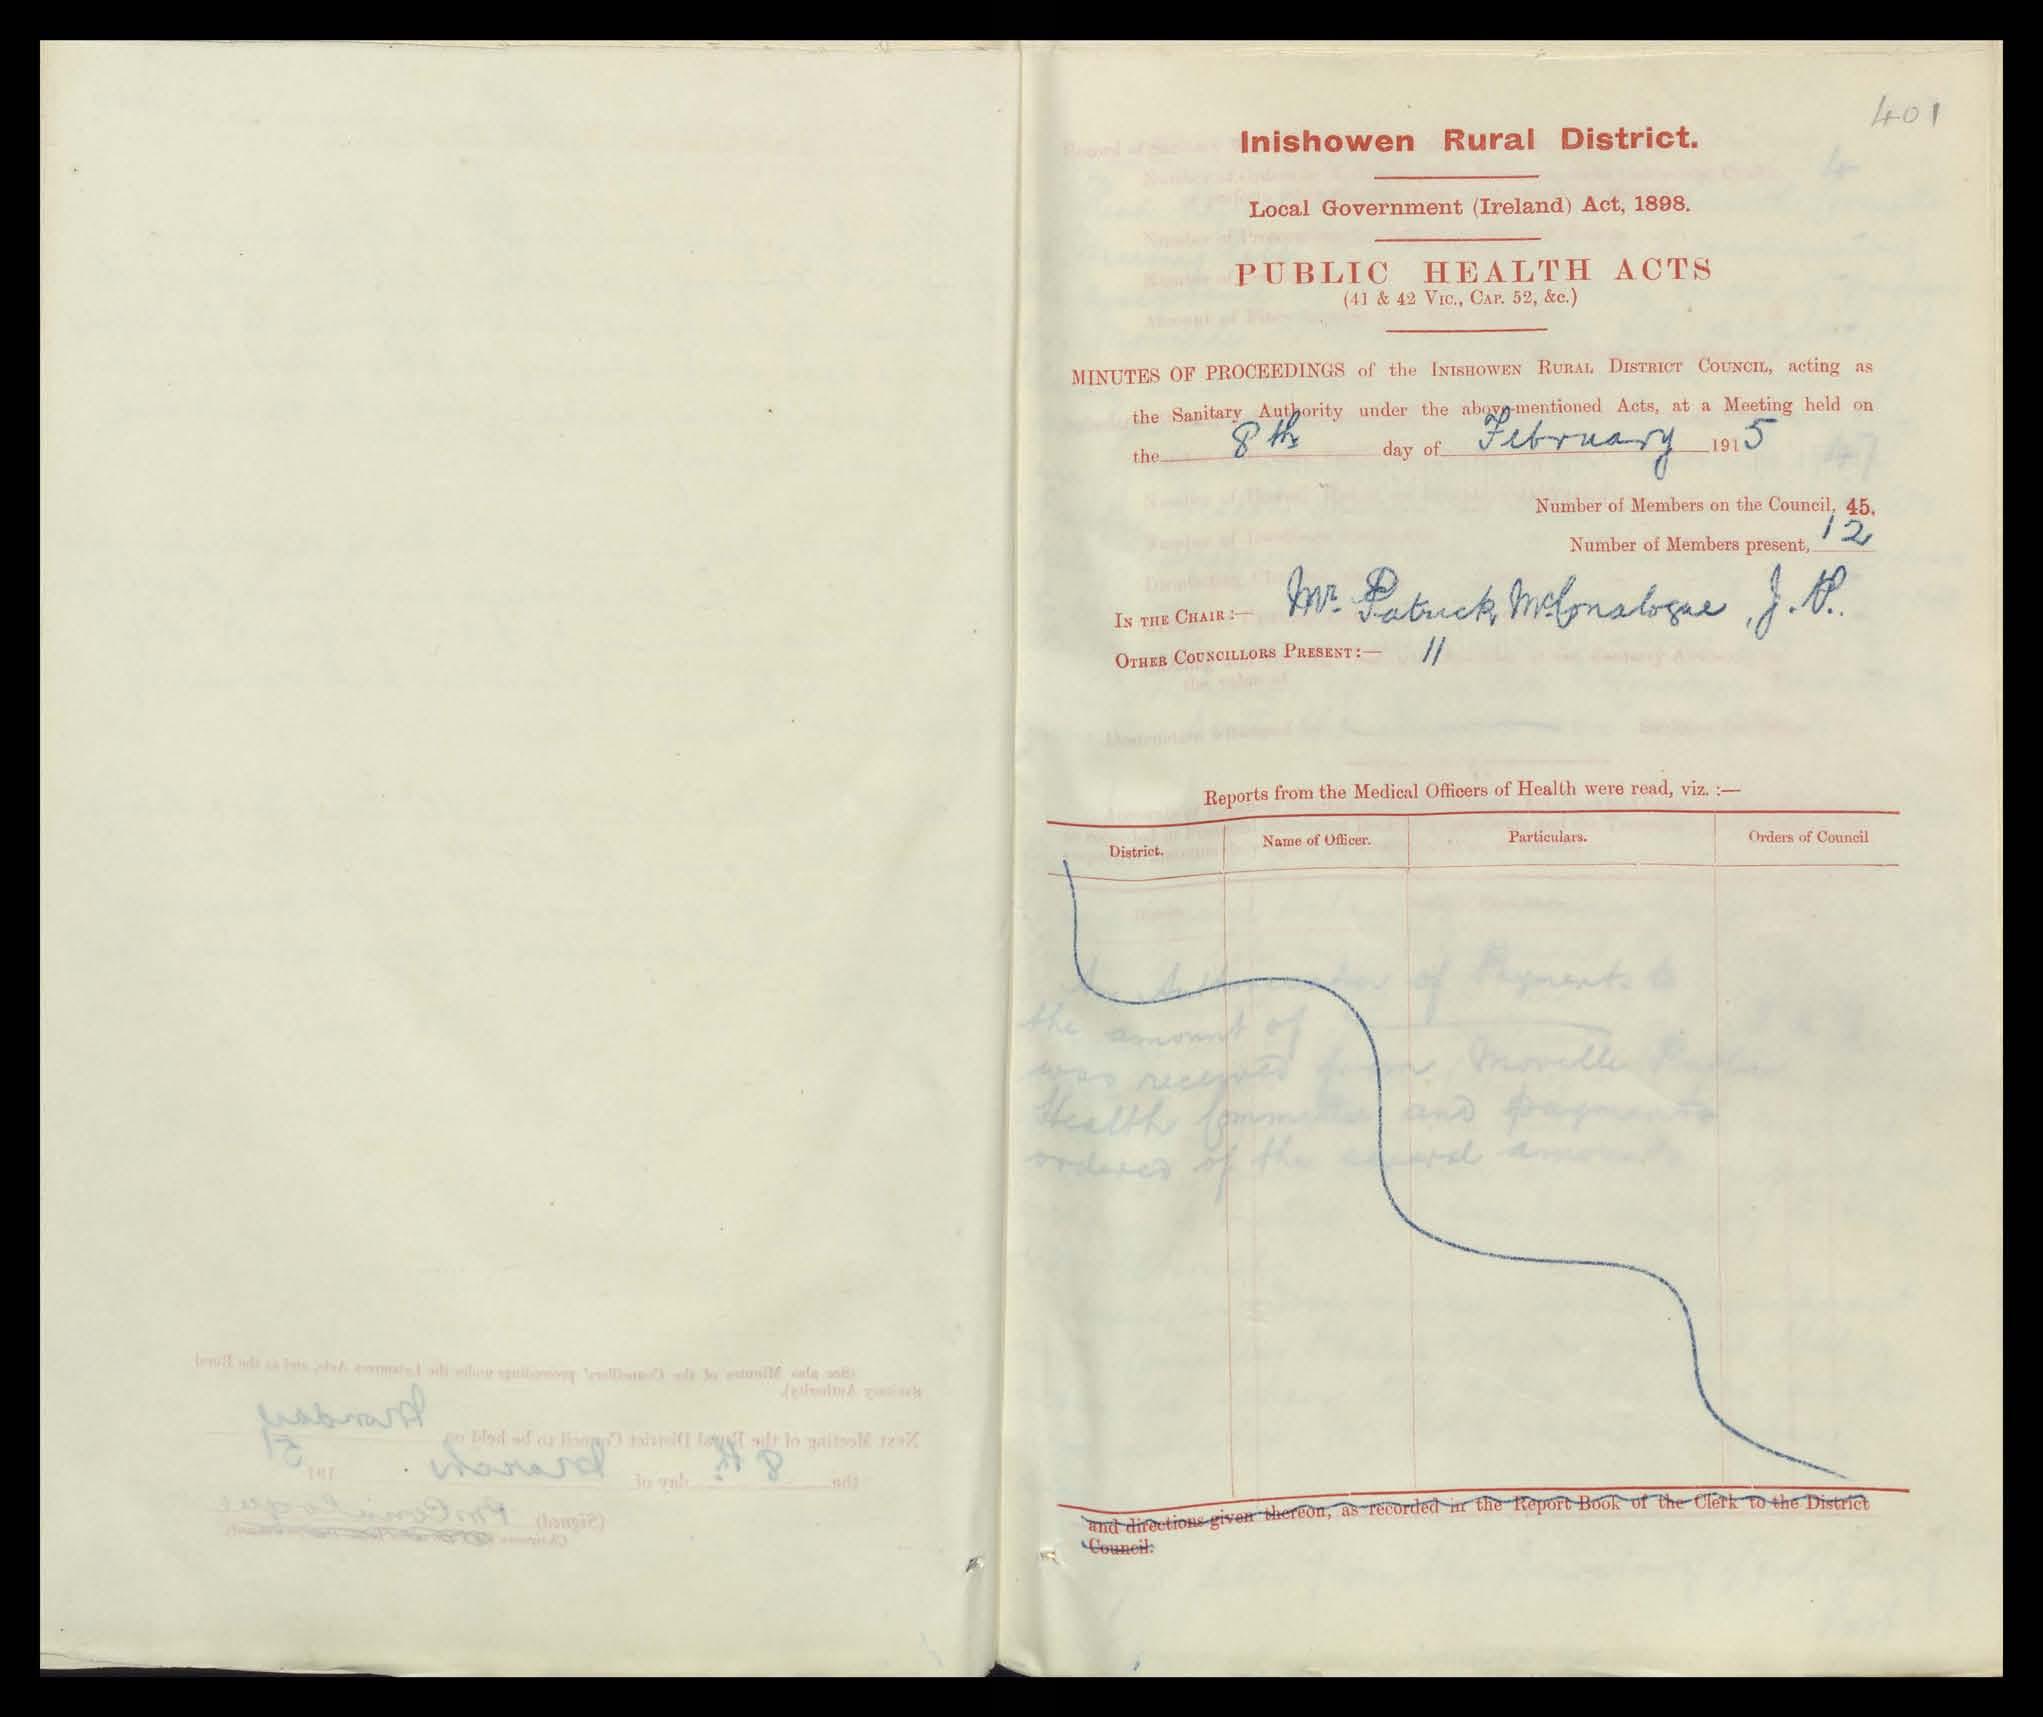 401
Inishowen Rural District.
Local Government (Ireland) Act, 1898.
PUBLIC HEALTH ACTS
(41 & 42 Vic., Cap. 52, &c.)
MINUTES OF PROCEEDINGS of the Inishowen Rural District Council, acting as
the Sanitary Authority under the above-mentioned Acts, at a Meeting held on
the 8th day of February 1915
Number of Members on the Council, 45.
Number of Members present, 12
In the Chair:— Mr. Patrick McConalogue, J.P.
Other Councillors Present:— 11
Reports from the Medical Officers of Health were read, viz. :—
District. Name of Officer. Particulars. Orders of Council
and directions given thereon, as recorded in the Report Book of the Clerk to the District
Council.